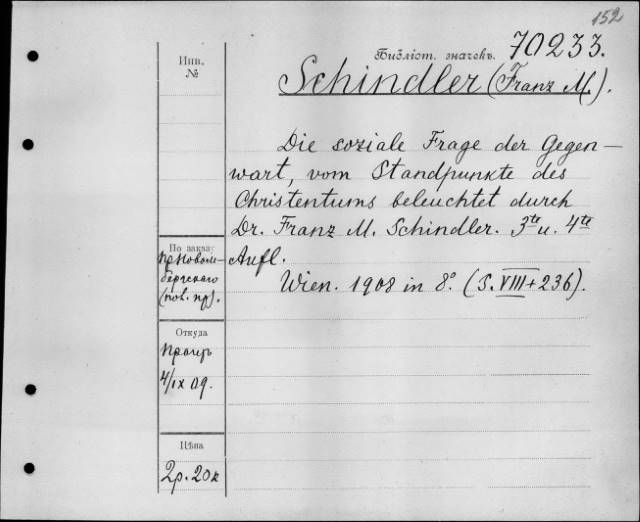 152
Библіот. значекъ. 70233.
Инв.
№
Schindler (Franz M).
Die soziale Frage der Gegen-
wart, vom Standpunkte des
Christentums beleuchtet durch
Dr. Franz M. Schindler. 3te u. 4te
Aufl.
Wien. 1908 in 8º. (S. VIII+236).
По заказу
(пов. пр).
Откуда
4/IX 09.
Цѣна
2р. 20к